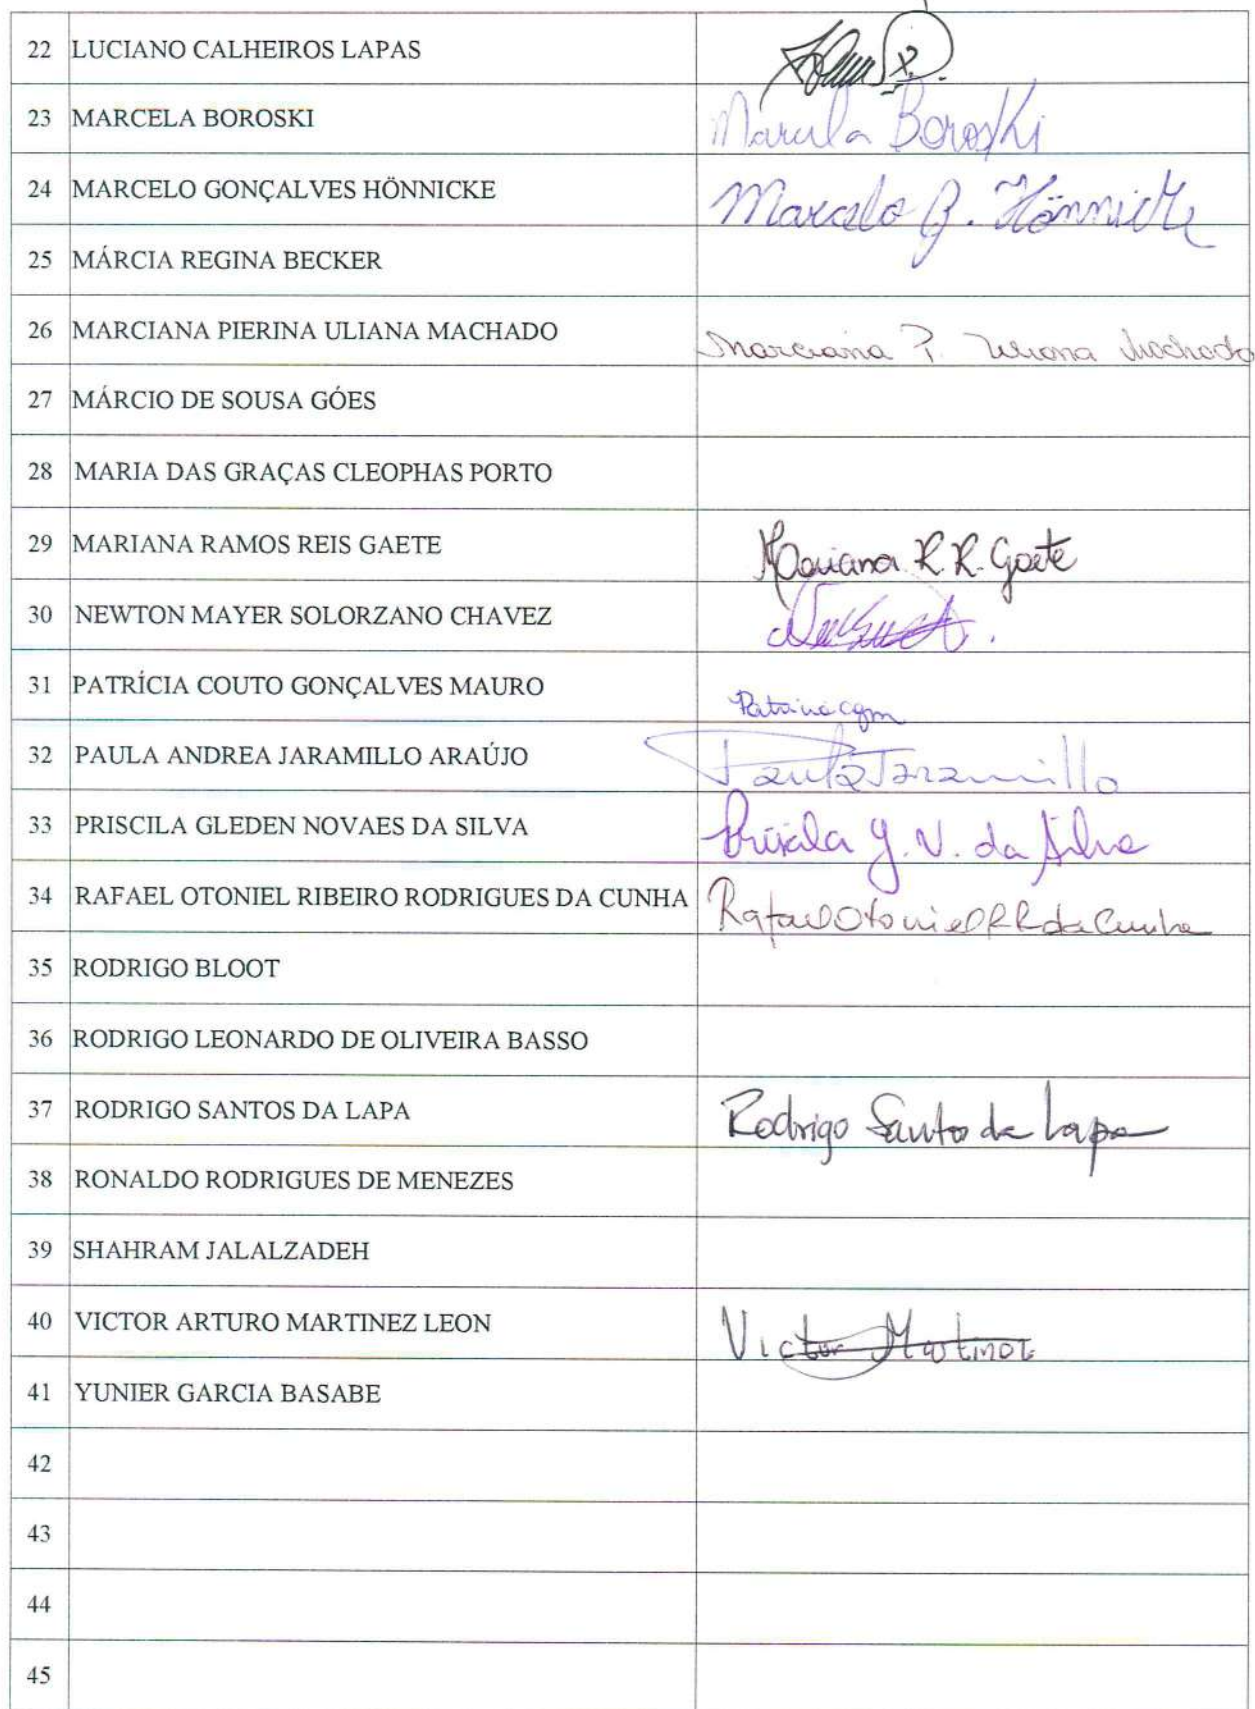 22 LUCIANO CALHEIROS LAPAS
23 MARCELA BOROSKI Marcela Boroski
24 MARCELO GONÇALVES HÖNNICKE Marcelo G. Hönnicke
25 MÁRCIA REGINA BECKER
26 MARCIANA PIERINA ULIANA MACHADO Marciana P. Uliana Machado
27 MÁRCIO DE SOUSA GÓES
28 MARIA DAS GRAÇAS CLEOPHAS PORTO
29 MARIANA RAMOS REIS GAETE Mariana R. R. Gaete
30 NEWTON MAYER SOLORZANO CHAVEZ
31 PATRÍCIA COUTO GONÇALVES MAURO Patrícia cgm
32 PAULA ANDREA JARAMILLO ARAÚJO Paula Jaramillo
33 PRISCILA GLEDEN NOVAES DA SILVA Priscila G. N. da Silva
34 RAFAEL OTONIEL RIBEIRO RODRIGUES DA CUNHA Rafael Otoniel R R da Cunha
35 RODRIGO BLOOT
36 RODRIGO LEONARDO DE OLIVEIRA BASSO
37 RODRIGO SANTOS DA LAPA Rodrigo Santos da Lapa
38 RONALDO RODRIGUES DE MENEZES
39 SHAHRAM JALALZADEH
40 VICTOR ARTURO MARTINEZ LEON Victor Martinez
41 YUNIER GARCIA BASABE
42
43
44
45